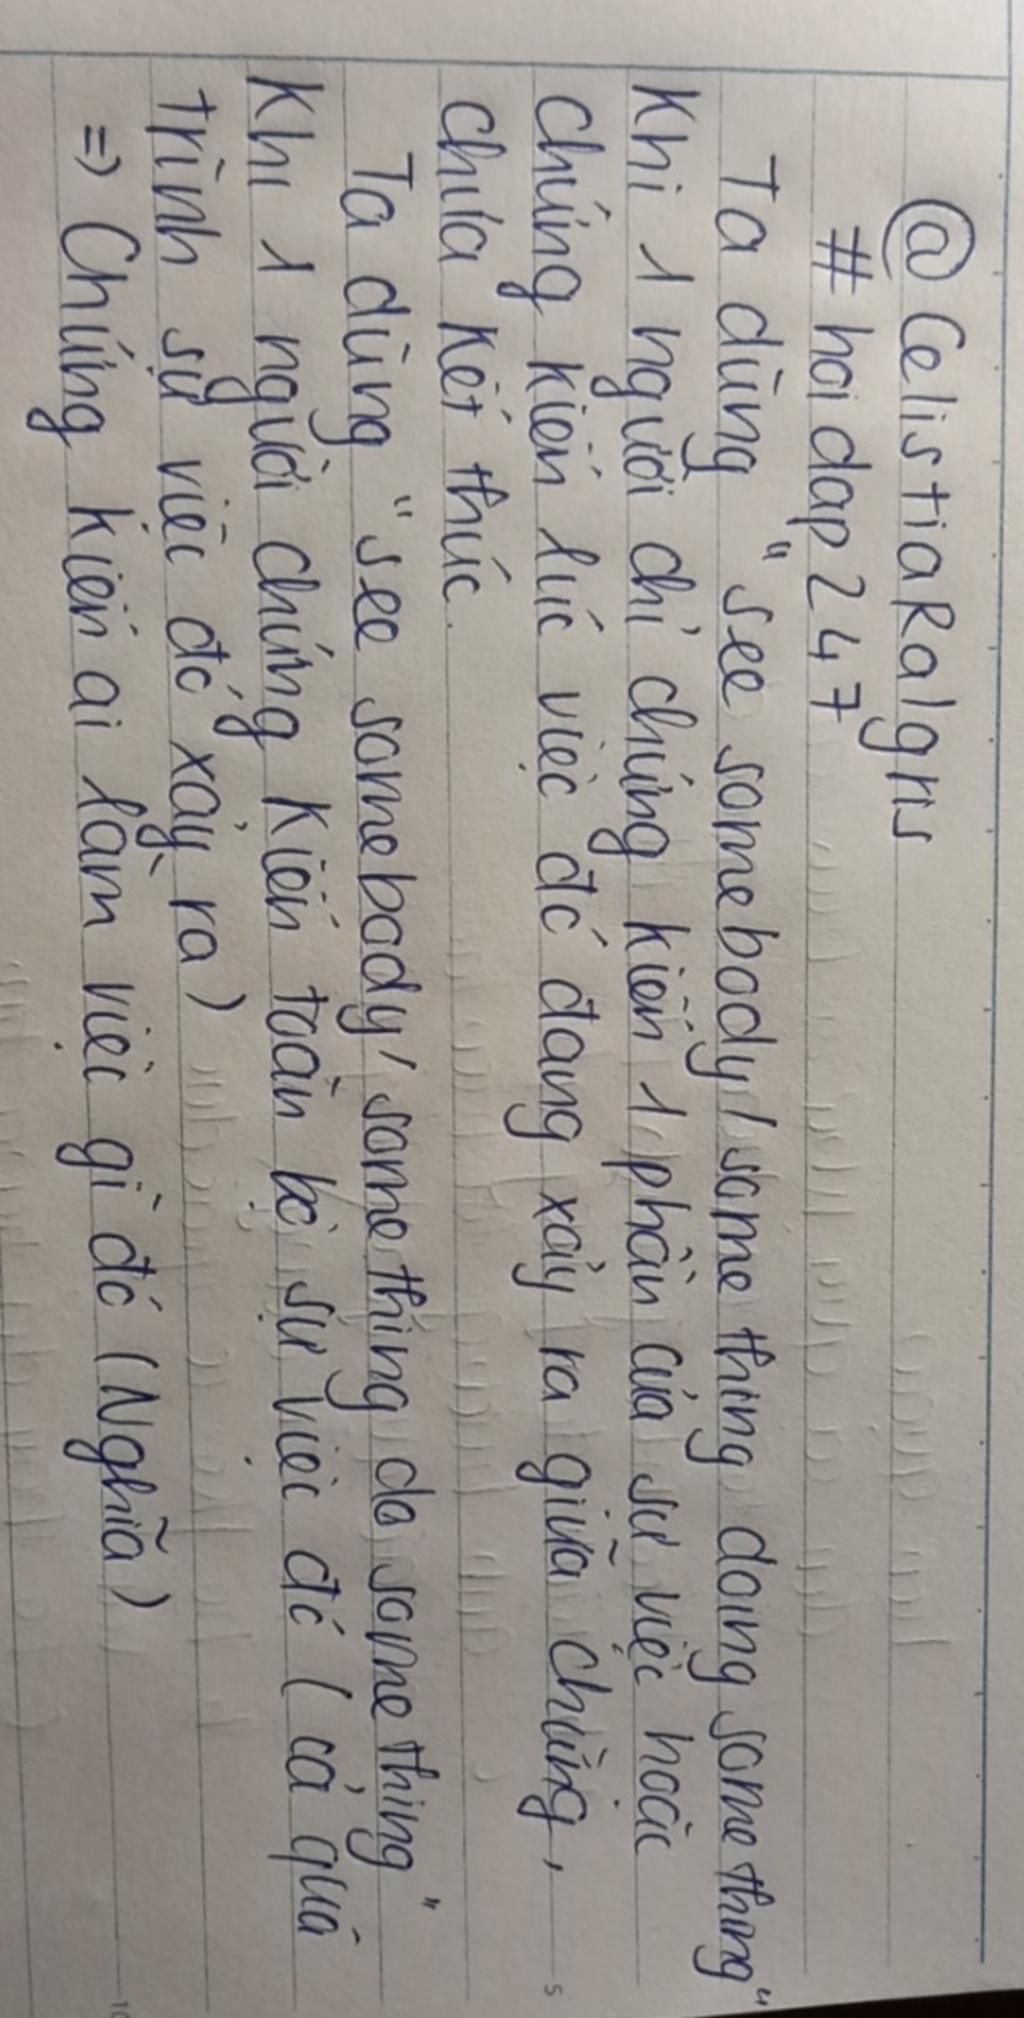 @CelistiaRalgris
#hoidap247
Ta dùng "see somebody/something doing something"
Khi 1 người chỉ chứng kiến 1 phần của sự việc hoặc
chứng kiến lúc việc đó đang xảy ra giữa chừng,
chưa kết thúc.
Ta dùng "see somebody/something do something"
Khi 1 người chứng kiến toàn bộ sự việc đó (cả quá
trình sự việc đó xảy ra)
=> Chứng kiến ai làm việc gì đó (Nghĩa)
5
10